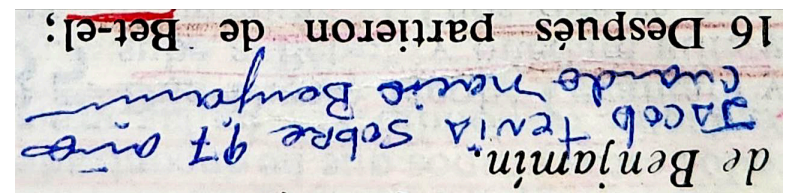 de Benjamín.
Jacob tenia sobre 97 años
cuando nacio Benjamin
16 Después partieron de Bet-el;